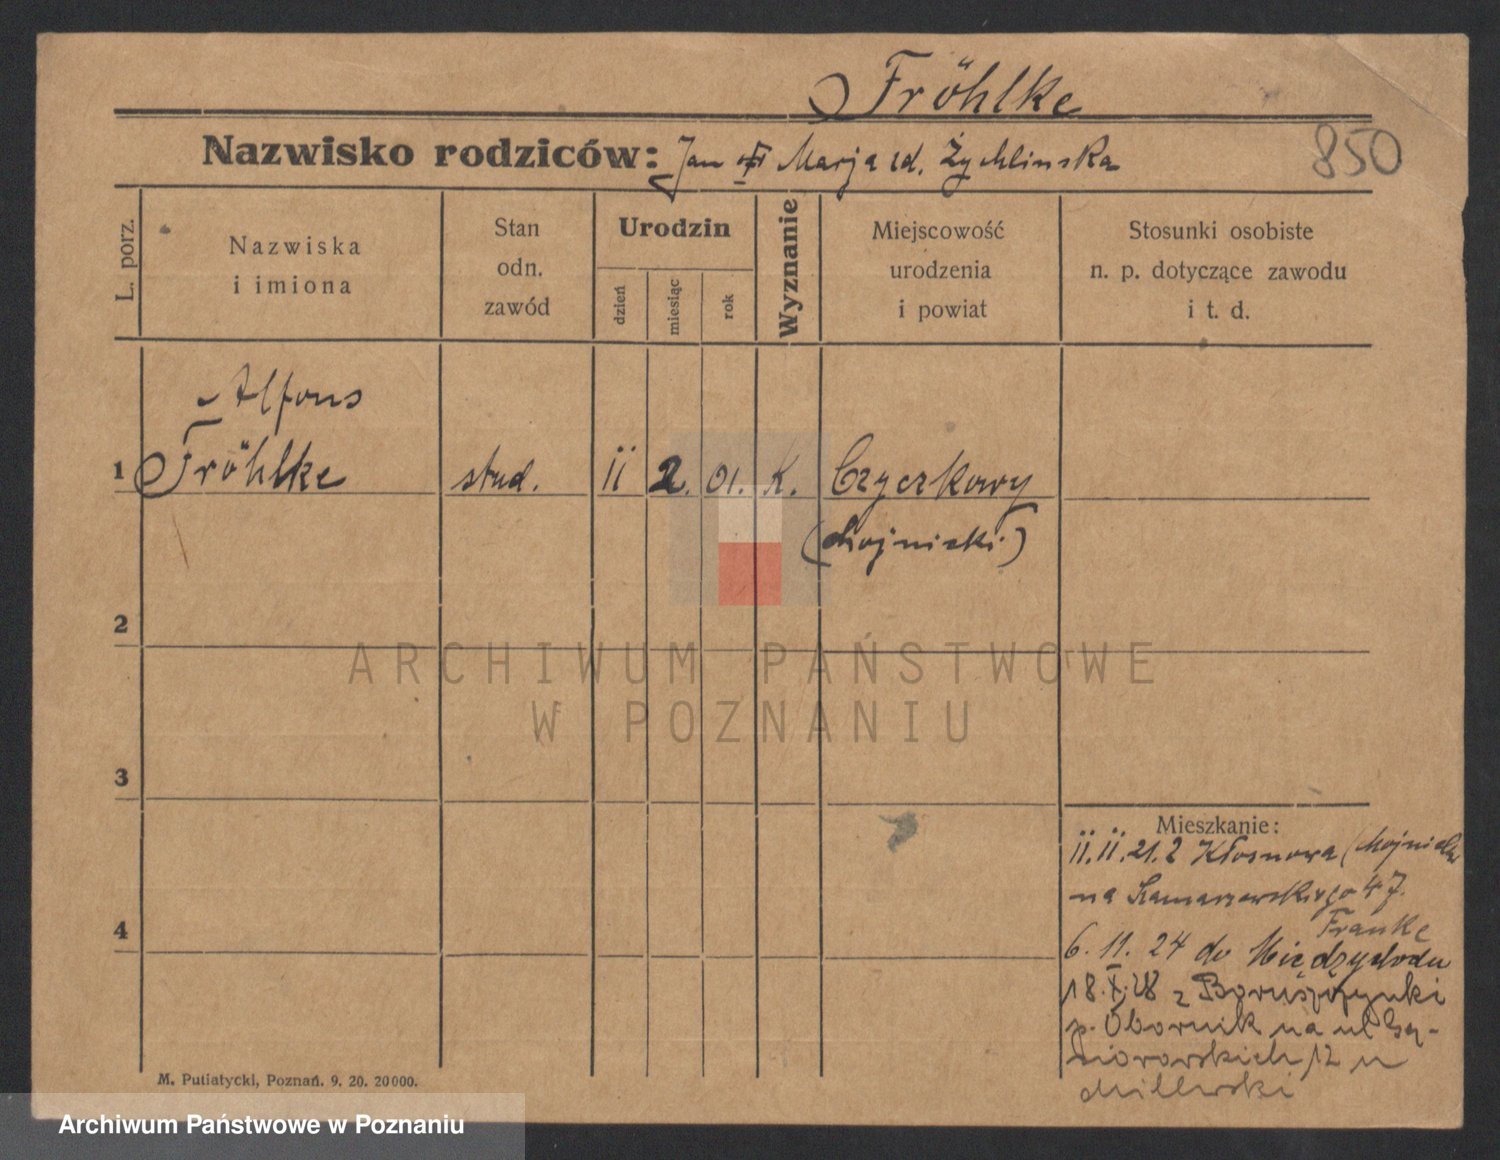 Fröhlke
Nazwisko rodziców: Jan Marja zd. Żychlinska
850
L. porz.
Nazwiska
i imiona
Stan
odn.
zawód
Urodzin
dzień
miesiąc
rok
Wyznanie
Miejscowość
urodzenia
i powiat
Stosunki osobiste
n. p. dotyczące zawodu
i t. d.
Alfons
1 Fröhlke stud. II 2. 01. K. Czyczkowy
(chojnicki)
2
3
4
Mieszkanie:
II. II. 21. z Kłosnowa (chojnicki
na 47.
Franke
6. 11. 24 do Międzychodu
18. X. 28 z
p. Obornik na ul Gą-
siorowskich 12 u
M. Putiatycki, Poznań. 9. 20. 20000.
ARCHIWUM PAŃSTWOWE
W POZNANIU
Archiwum Państwowe w Poznaniu